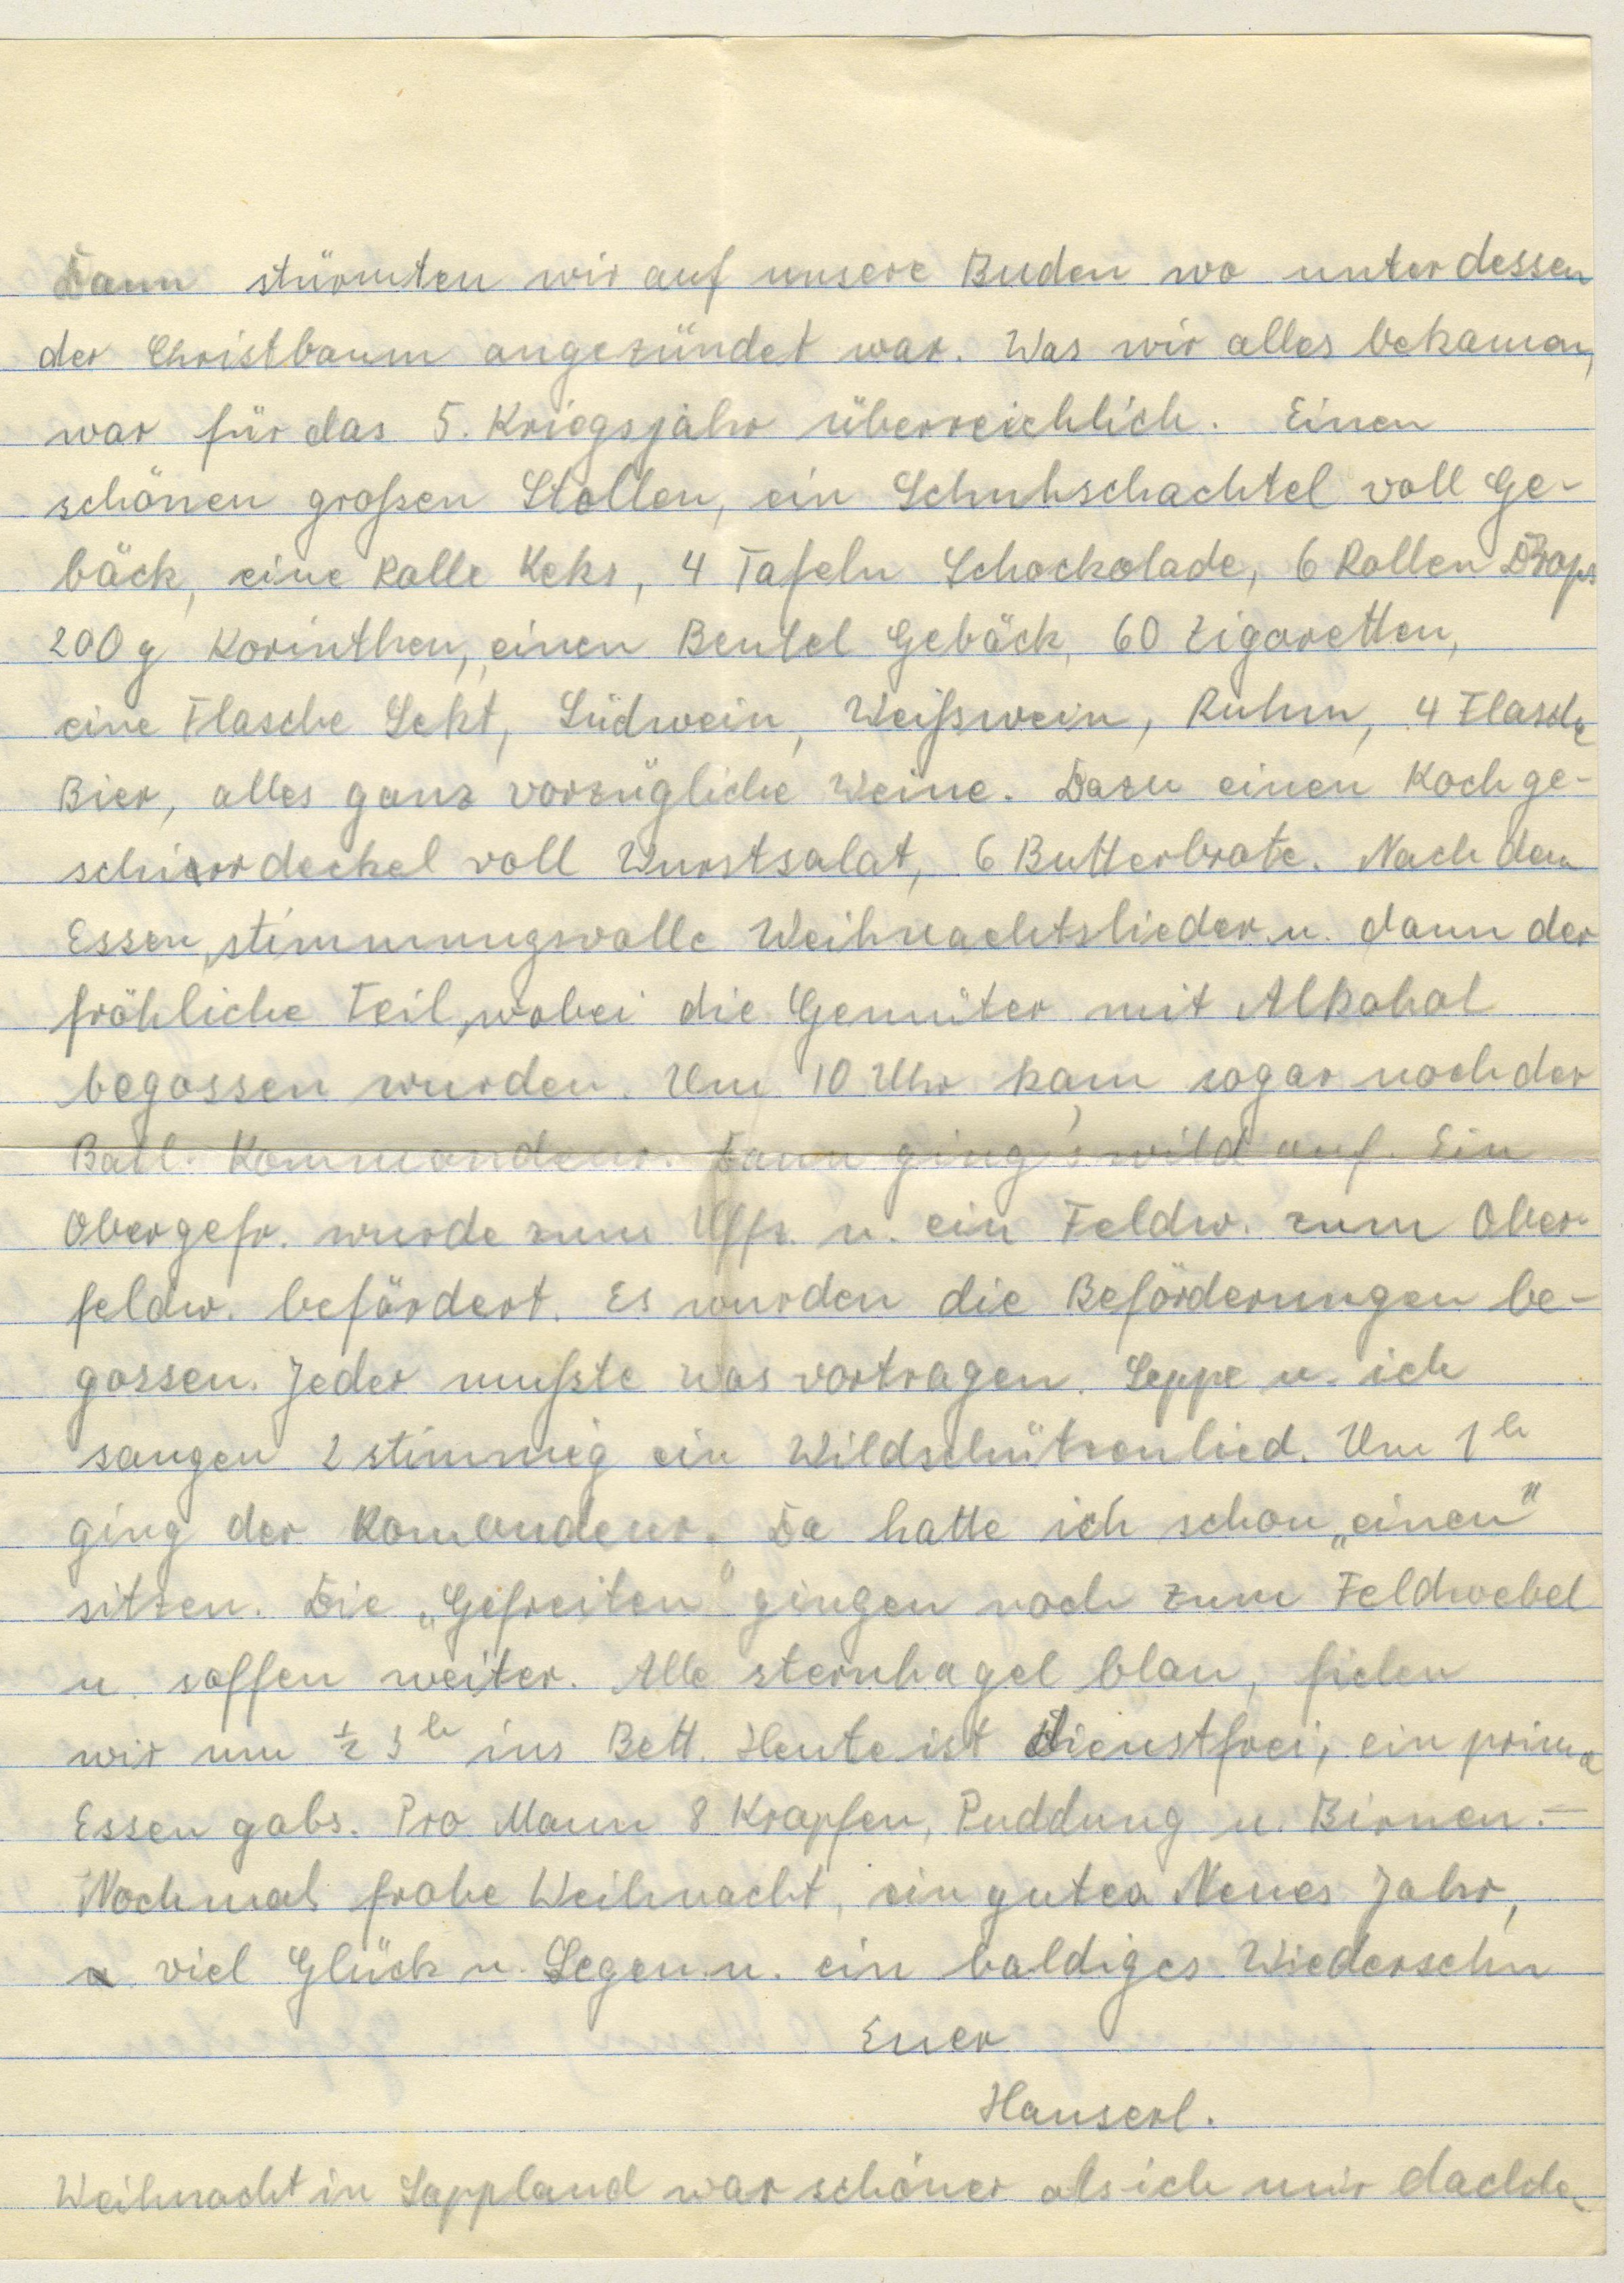 Dann stürmten wir auf unsere Buden wo unterdessen
der Christbaum angezündet war. Was wir alles bekamen,
war für das 5. Kriegsjahr überreichlich. Einen
schönen großen Stollen, ein Schuhschachtel voll Ge-
bäck, eine Rolle Keks, 4 Tafeln Schockolade, 6 Rollen Drops
200 g Korinthen, einen Beutel Gebäck, 60 Zigaretten,
eine Flasche Sekt, Südwein, Weißwein, Ruhm, 4 Flasche
Bier, alles ganz vorzügliche Weine. Dazu einen Kochge-
schirrdeckel voll Wurstsalat, 6 Butterbrote. Nach dem
Essen, stimmungsvolle Weihnachtslieder u. dann der
fröhliche Teil, wobei die Gemüter mit Alkohol
begossen wurden. Um 10 Uhr kam sogar noch der
Batl. Kommandeur. Dann ging's wild auf. Ein
Obergefr. wurde zum Uffz. u. ein Feldw. zum Ober-
feldw. befördert. Es wurden die Beförderungen be-
gossen. Jeder mußte was vortragen. Seppe u. ich
sangen 2 stimmig ein Wildschützenlied. Um 1 h
ging der Komandeur. Da hatte ich schon „einen"
sitzen. Die „Gefreiten" gingen noch zum Feldwebel
u. soffen weiter. Alle sternhagel blau, fielen
wir um ½ 3 h ins Bett. Heute ist dienstfrei, ein prima
Essen gabs. Pro Mann 8 Krapfen, Puddung u. Birnen. —
Nochmal frohe Weihnacht, ein gutes Neues Jahr,
viel Glück u. Segen u. ein baldiges Wiedersehn
Euer
Hanserl.
Weihnacht in Lappland war schöner als ich mir dachte.